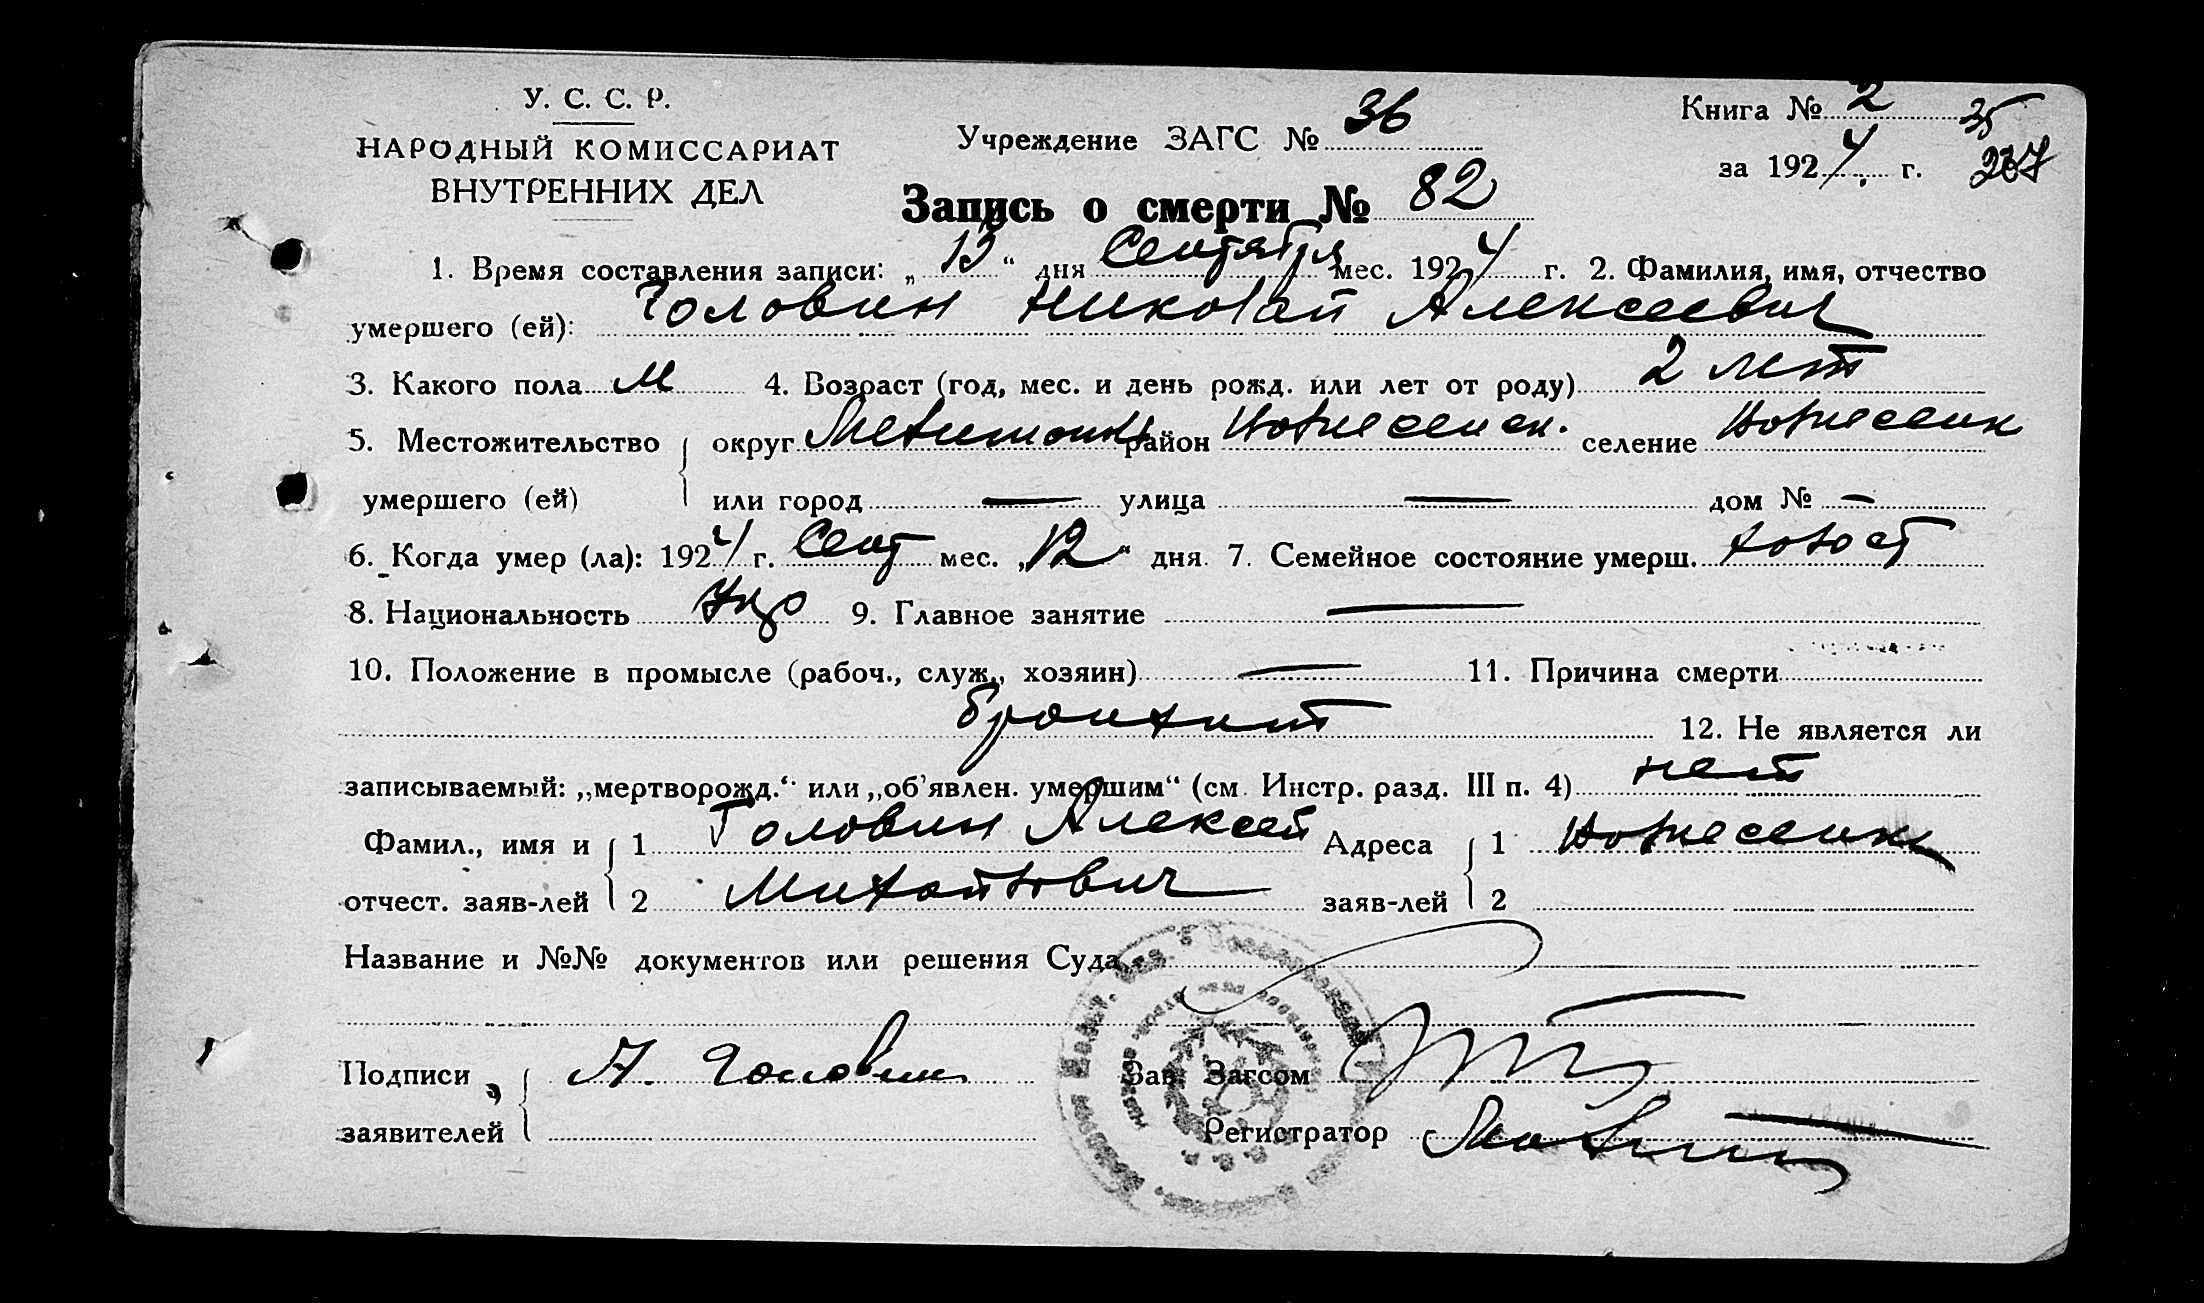 У. С. С. Р.
НАРОДНЫЙ КОМИССАРИАТ
ВНУТРЕННИХ ДЕЛ
Учреждение ЗАГС № 36
Книга № 2 35
за 1924 г. 237
Запись о смерти № 82
1. Время составления записи: „13“ дня Сентября мес. 1924 г. 2. Фамилия, имя, отчество
умершего (ей): Головин Николай Алексеевич
3. Какого пола М 4. Возраст (год, мес. и день рожд. или лет от роду) 2 лет
5. Местожительство округ район Вознесенск. селение Вознесенк
умершего (ей) или город — улица — дом № —
6. Когда умер (ла): 1924 г. Сент мес. „12“ дня. 7. Семейное состояние умерш. холост
8. Национальность Укр 9. Главное занятие —
10. Положение в промысле (рабоч., служ., хозяин) — 11. Причина смерти
бронхит 12. Не является ли
записываемый: „мертворожд.“ или „об'явлен. умершим“ (см. Инстр. разд. III п. 4) нет
Фамил., имя и 1 Головин Алексей Адреса 1 Вознесенк
отчест. заяв-лей 2 Михайлович заяв-лей 2
Название и №№ документов или решения Суда
Подписи А. Головин Зав. Загсом
заявителей Регистратор